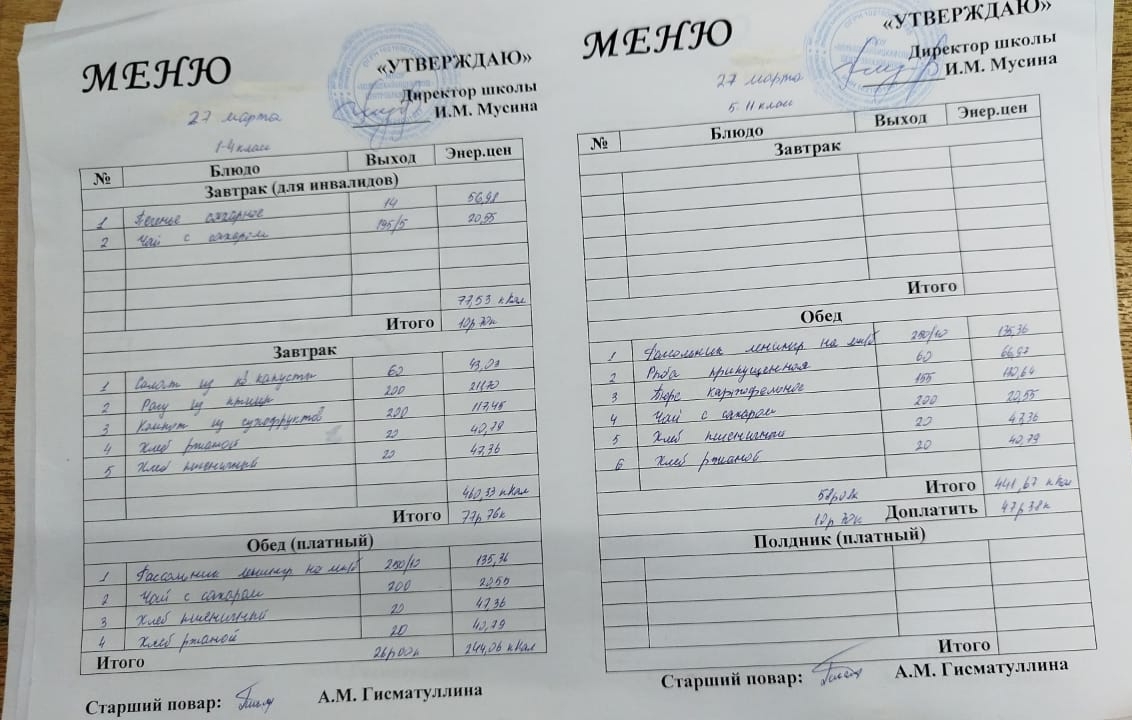 МЕНЮ
«УТВЕРЖДАЮ»
Директор школы
И.М. Мусина
27 марта
1-4 класс
№ Блюдо Выход Энер.цен
Завтрак (для инвалидов)
1 Печенье сахарное 14 56,98
2 Чай с сахаром 195/5 20,55
77,53 кКал
Итого 10р70к
Завтрак
1 Салат из кв капусты 60 43,03
2 Рагу из птицы 200
3 Компот из сухофруктов 200 117,45
4 Хлеб ржаной 20 40,79
5 Хлеб пшеничный 20 47,36
460,33 кКал
Итого 77р76к
Обед (платный)
1 Рассольник ленингр на мк/б 250/10 135,36
2 Чай с сахаром 200 20,55
3 Хлеб пшеничный 20 47,36
4 Хлеб ржаной 20 40,79
Итого 26р00к 244,06 кКал
Старший повар: А.М. Гисматуллина
МЕНЮ
«УТВЕРЖДАЮ»
Директор школы
И.М. Мусина
27 марта
5-11 класс
№ Блюдо Выход Энер.цен
Завтрак
Итого
Обед
1 Рассольник ленингр на мк/б 250/10 135,36
2 Рыба припущенная 60 66,97
3 Пюре картофельное 155 130,64
4 Чай с сахаром 200 20,55
5 Хлеб пшеничный 20 47,36
6 Хлеб ржаной 20 40,79
Итого 441,67 кКал
58р08к
10р70к Доплатить 47р38к
Полдник (платный)
Итого
Старший повар: А.М. Гисматуллина